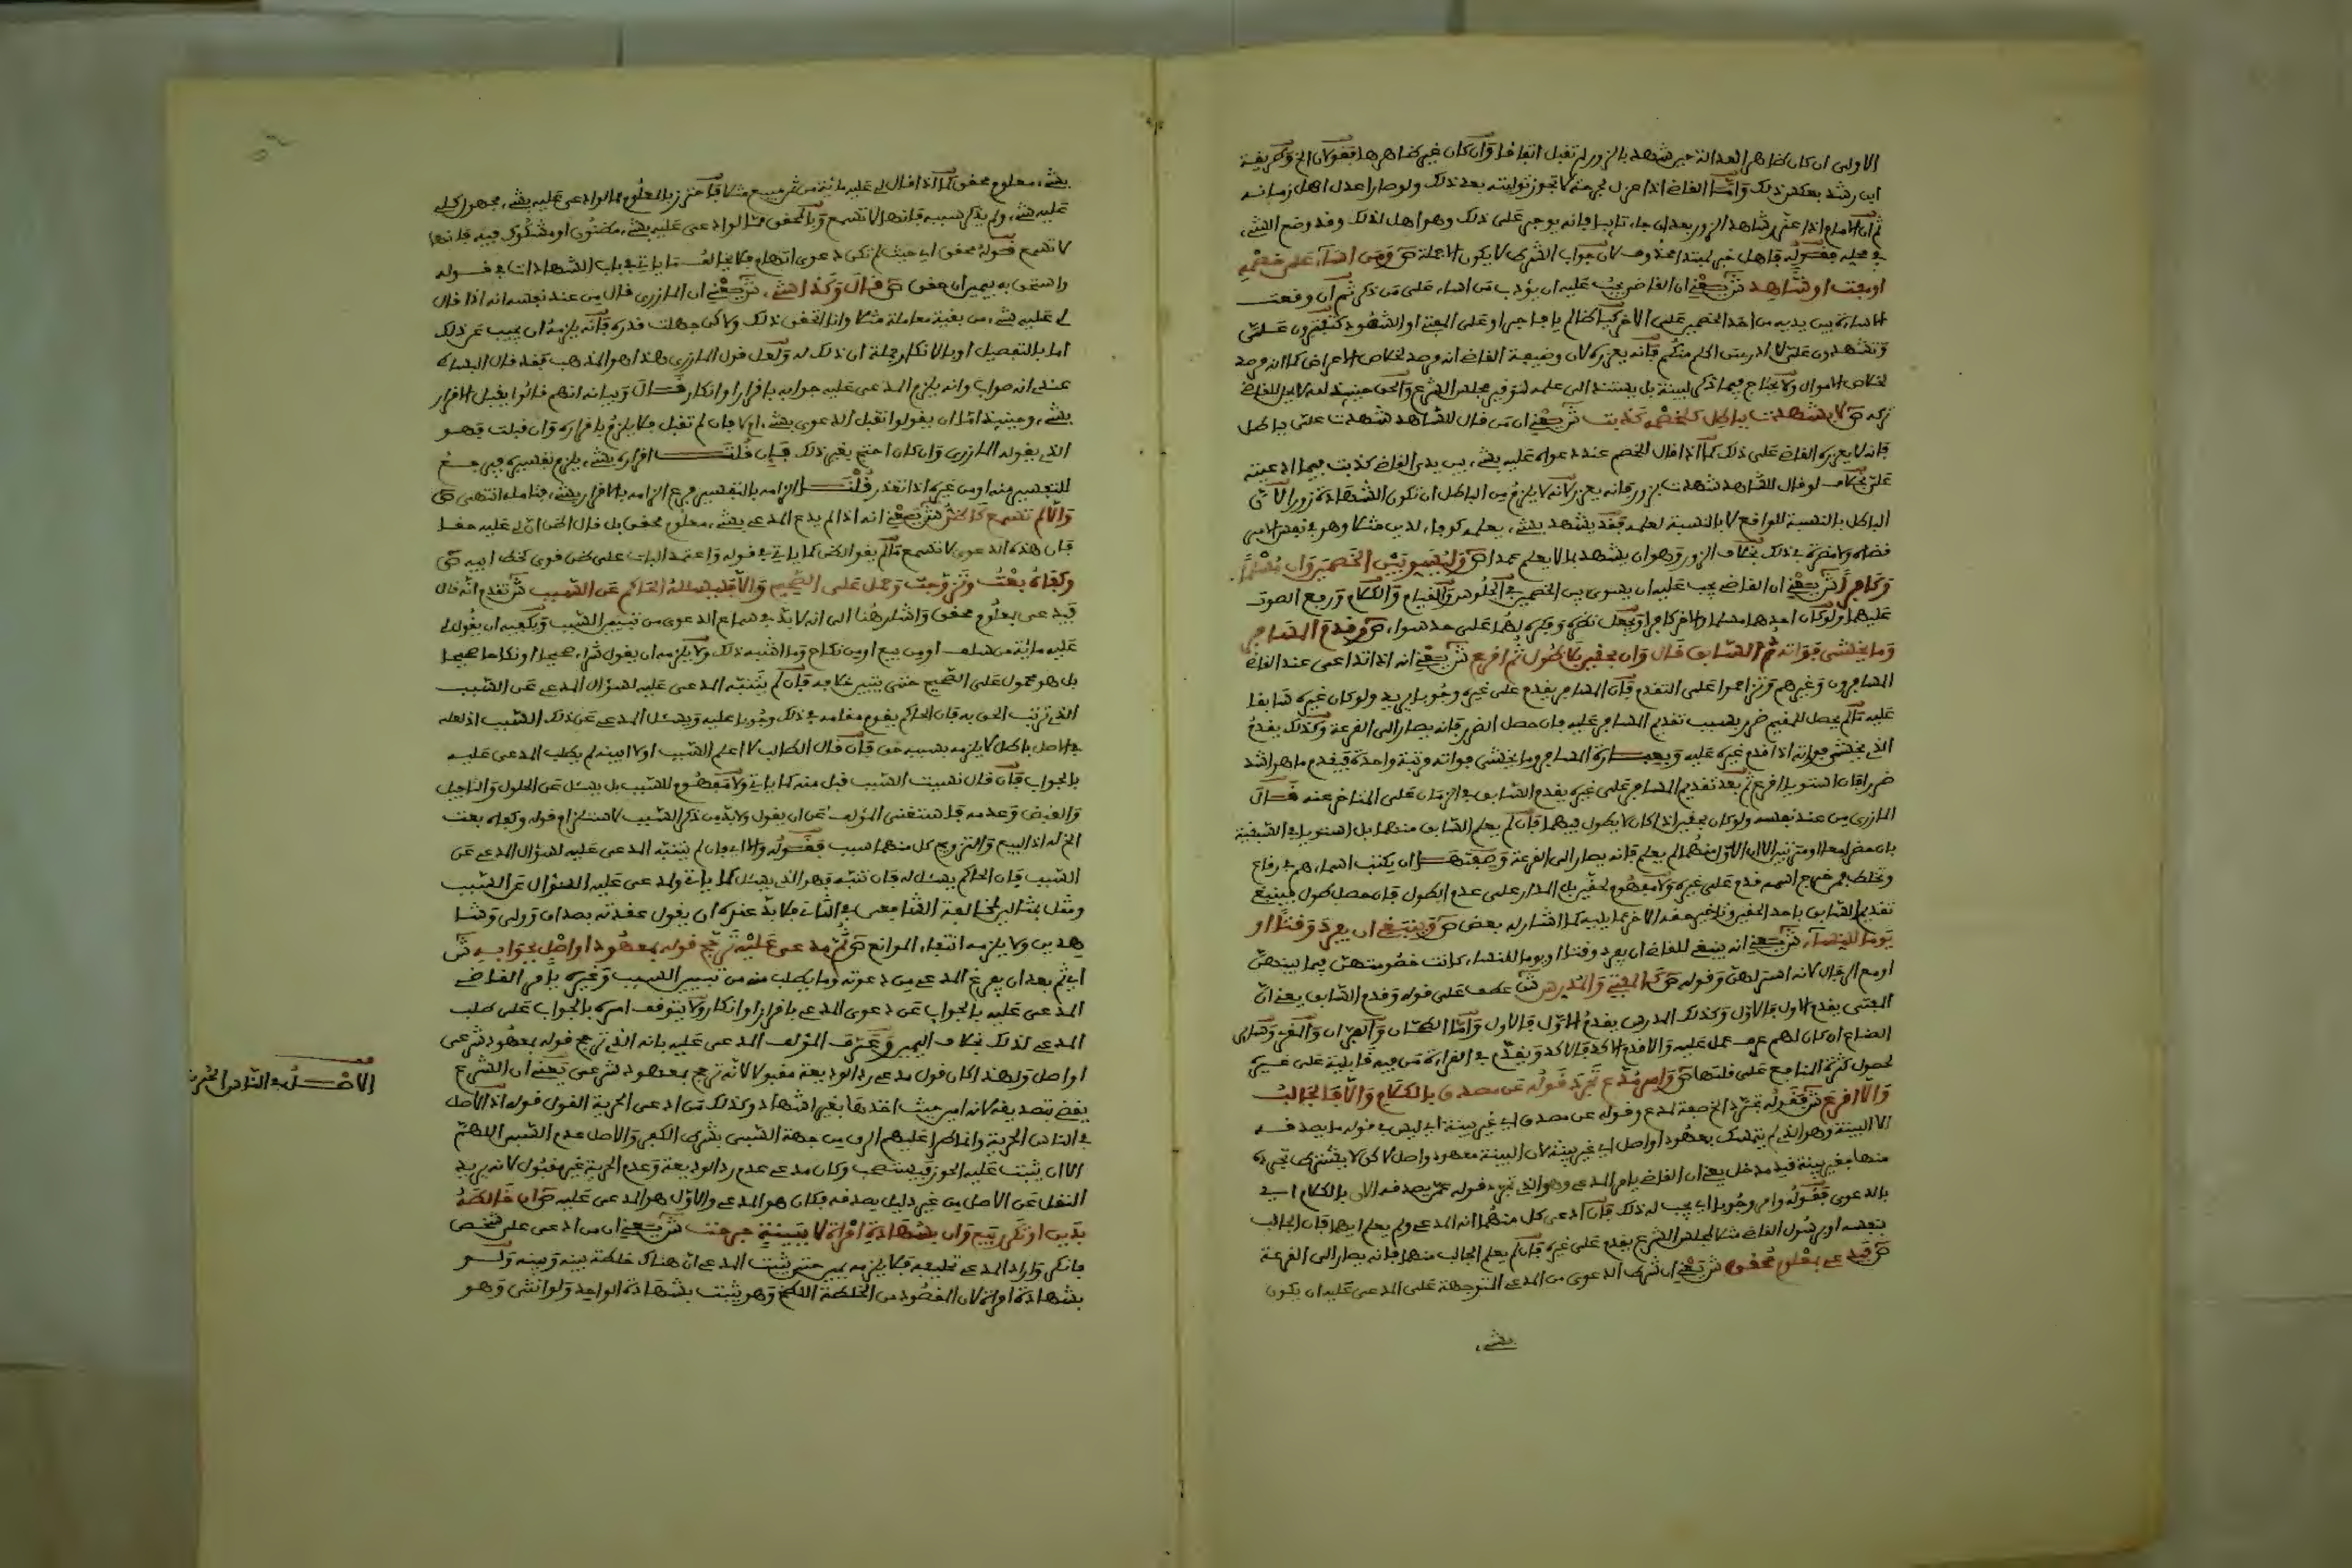 الاولى ان كان ظاهر العدالة حين شهد بالزور لم تقبل اتفاقا وان كان غير ظاهرها فقولان الخ وطريقة
ابن رشد بعكس ذلك واما القاضي اذا عزل لجرحة لا تجوز توليته بعد ذلك ولو صار اعدل اهل زمانه
ثم ان الامام اذا عزر شاهد الزور بعد ان جاء تايبا فانه يوجر على ذلك وهو اهل لذلك وقد وضع الشيء
في محله فقوله فاهل خبر لمبتدا محذوف لان جواب الشرط لا يكون الا جملة ص ومن اساء على خصمه
او مفت او شاهد ش يعني ان القاضي يجب عليه ان يؤدب من اساء على من ذكر ثم ان وقعت
الاساءة بين يديه من احد الخصمين على الاخر كيا ظالم يا فاجر او على المفتي او الشهود كتفترون علي
وتشهدون علي لا ادري من اكلم منكم فانه يعزره لان وضيعة القاضي انه مرصد لخلاص الاعراض كما انه مرصد
لخلاص الاموال ولا يحتاج فيما ذكر لبينة بل يستند الى علمه لتوقير مجلس الشرع والحق حينئذ لله لا يحل للقاضي
تركه ص لا بشهدت بباطل كلخصمه كذبت ش يعني ان من قال للشاهد شهدت علي بباطل
فانه لا يعزره القاضي على ذلك كما اذا قال للخصم عند دعواه عليه بشيء بين يدي القاضي كذبت فيما ادعيته
علي بخلاف لو قال للشاهد شهدت بزور فانه يعزر لانه لا يلزم من الباطل ان تكون الشهادة زورا لان
الباطل بالنسبة للواقع لا بالنسبة لعلمه فقد يشهد بشيء يعلمه كوجاء لدين مثلا وهو في نفس الامر
قضاه ولا مضرة في ذلك بخلاف الزور وهو ان يشهد بما لا يعلم عمدا ص وليسو بين الخصمين وان مسلما
وكافرا ش يعني ان القاضي يجب عليه ان يسوي بين الخصمين في الجلوس والقيام والكلام ورفع الصوت
عليهما ولو كان احدهما مسلما والاخر كافرا ويجعل نظره وفكره لهما على حد سواء ص وقدم المسافر
وما يخشى فواته ثم السابق قال وان بحقين بلا طول ثم اقرع ش يعني انه اذا تداعى عند القاضي
المسافرون وغيرهم وتزاحموا على التقدم فان المسافر يقدم على غيره وجوبا ولو كان غيره سابقا
عليه ما لم يحصل للمقيم ضرر بسبب تقديم المسافر عليه فان حصل الضرر فانه يصار الى القرعة وكذلك يقدم
الذي يخشى فواته اذا قدم غيره عليه وبعبارة المسافر وما يخشى فواته مرتبة واحدة فيقدم ما هو اشد
ضررا فان استويا اقرع ثم بعد تقديم المسافر على غيره يقدم السابق في الزمان على المتاخر عنه قال
المازري من عند نفسه ولو كان بحقين اذا كان لا يطول فيهما فان لم يعلم السابق منهما بل استويا في السبقية
بان حضرا معا او مترتبين الا ان الاول منهما لم يعلم فانه يصار الى القرعة وصفتها ان يكتب اسماءهم في رقاع
وتخلط فمن خرج اسمه قدم على غيره ولا مفهوم لحقين بل المدار على عدم الطول فان حصل طول فينبغي
تقديم السابق باحد الحقين وتاخير حقه الاخر عما يليه كما اشار له بعض ص وينبغي ان يفرد وقتا او
يوما للنساء ش يعني انه ينبغي للقاضي ان يفرد وقتا او يوما للنساء كانت خصومتهن فيما بينهن
او مع الرجال لانه استر لهن وقوله ص كالمفتي والمدرس ش عطف على قوله وقدم السابق يعني ان
المفتي يقدم الاول فالاول وكذلك المدرس يقدم الاول فالاول واما الطحان والفران والمقري وسائر
الصناع ان كان لهم عرف عمل عليه والا قدم الاكد فالاكد ويقدم في القراءة من فيه قابلية على غيره
لحصول كثرة المنافع على قلتها ص وامر مدع تجرد قوله عن مصدق بالكلام والا فالجالب
والا اقرع ش فقوله تجرد الخ صفة لمدع وقوله عن مصدق اي غير بينة اي ليس في قوله ما يصدقه
الا البينة وهو الذي لم يتمسك بمعهود او اصل اي غير بينة لان البينة معهود واصل لاكن لا يشترط تجرده
منها فغير بينة قيد مدخل يعني ان القاضي يامر المدعي وهو الذي تجرد قوله عمن يصدقه الان بالكلام اي
بالدعوى فقوله وامر وجوبا اي يجب له ذلك فان ادعى كل منهما انه المدعي ولم يعلم ايهما فان الجالب
بنفسه او برسول القاضي مثلا لمجلس الشرع يقدم على غيره فان لم يعلم الجالب منهما فانه يصار الى القرعة
ص فيدعي بمعلوم محقق ش يعني ان شرط الدعوى من المدعي المتوجهة على المدعى عليه ان يكون
بشيء
بشيء معلوم محقق كما اذا قال لي عليه مائة من ثمن مبيع مثلا فاحترز بالمعلوم مما لو ادعى عليه بشيء مجهول كلي
عليه شيء ولم يذكر سببه فانها لا تسمع وبالمحقق مما لو ادعى عليه بشيء مضنون او مشكوك فيه فانها
لا تسمع قوله محقق اي حيث لم تكن دعوى اتهام فلا يخالف ما ياتي في باب الشهادات في قوله
واستحق به بيمين ان حقق ص قال وكذا شيء ش يعني ان المازري قال من عند نفسه انه اذا قال
لي عليه شيء من بقية معاملة مثلا وانا اتحقق ذلك ولاكن جهلت قدره فانه يلزمه ان يجيب عن ذلك
اما بالتفصيل او بالانكار جملة ان ذلك له ولعل قول المازري هذا هو المذهب فقد قال البساطي
عندي انه صواب وانه يلزم المدعى عليه جوابه باقرار او انكار قال وبيانه انهم قالوا يقبل الاقرار
بشيء وحينئذ اما ان يقولوا تقبل الدعوى بشيء او لا فان لم تقبل فلا يلزم باقراره وان قبلت فهو
الذي يقوله المازري وان كان احتج بغير ذلك فان قلت اقراره بشيء يلزم تفسيره فيرجع
للتفسير منه او من غيره اذا تعذر قلت الزامه بالتفسير فرع الزامه بالاقرار بشيء فتامله انتهى ص
والا لم تسمع كاظن ش يعني انه اذا لم يدع المدعي بشيء معلوم محقق بل قال اظن ان لي عليه حقا
فان هذه الدعوى لا تسمع ما لم يقو الظن كما ياتي في قوله واعتمد البات على ظن قوي كخط ابيه ص
وكفاه بعت وتزوجت وحمل على الصحيح والا فليسئله الحاكم عن السبب ش تقدم انه قال
فيدعي بمعلوم محقق واشار هنا الى انه لا بد في سماع الدعوى من تبيين السبب ويكفيه ان يقول لي
عليه مائة من سلف او من بيع او من نكاح وما اشبه ذلك ولا يلزمه ان يقول شراء صحيحا او نكاحا صحيحا
بل هو محمول على الصحيح حتى يتبين خلافه فان لم يتنبه المدعى عليه لسؤال المدعي عن السبب
الذي ترتب الحق به فان الحاكم يقوم مقامه في ذلك وجوبا عليه ويسئل المدعي عن ذلك السبب اذ لعله
في الاصل باطل لا يلزمه بسببه حق فان قال الطالب لا اعلم السبب او لا ابينه لم يطلب المدعى عليه
بالجواب فان قال نسيت السبب قبل منه كما ياتي ولا مفهوم للسبب بل يسئل عن الحلول والتاجيل
والقبض وعدمه فاستغنى المؤلف عن ان يقول ولا بد من ذكر السبب لاستلزام قوله وكفاه بعت
الخ له اذ البيع والتزويج كل منهما سبب فقوله والا اي فان لم يتنبه المدعى عليه لسؤال المدعي عن
السبب فان الحاكم يسئله فان تنبه فهو الذي يسئل كما ياتي ولمدعى عليه السؤال عن السبب
ومثل بمثالين لمخالفة الشافعي في الثاني فلا بد عنده ان يقول عقدته بصداق وولي وشا
هدين ولا يلزمه انتفاء الموانع ص ثم مدعى عليه ترجح قوله بمعهود او اصل بجوابه ش
اي ثم بعد ان يفرغ المدعي من دعوته وما يطلب منه من تبيين السبب وغيره يامر القاضي
المدعى عليه بالجواب عن دعوى المدعي باقرار او انكار ولا يتوقف امره بالجواب على طلب
المدعي لذلك بخلاف اليمين وعرف المؤلف المدعى عليه بانه الذي ترجح قوله بمعهود شرعي
او اصل ولهذا كان قول مدعي رد الوديعة مقبولا لانه ترجح بمعهود شرعي يعني ان الشرع
يقضي بتصديقه لانه امين حيث اخذها بغير اشهاد وكذلك من ادعى الحرية القول قوله اذ الاصل
في الناس الحرية وانما طرا عليهم الرق من جهة السبي بشرط الكفر والاصل عدم السبي اللهم
الا ان يثبت عليه الحوز فيستصحب وكان مدعي عدم رد الوديعة وعدم الحرية غير مقبول لانه يريد
النقل عن الاصل من غير دليل يصدقه فكان هو المدعي والاول هو المدعى عليه ص ان خالطه
بدين او تكرر بيع وان بشهادة امراة لا ببينة جرحت ش يعني ان من ادعى على شخص
فانكر واراد المدعي تحليفه فلا يلزمه يمين حتى يثبت المدعي ان هناك خلطة بينه وبينه ولو
بشهادة امراة لان المقصود من الخلطة اللطخ وهو يثبت بشهادة الواحد ولو انثى وهو
الاصل في الناس الحرية